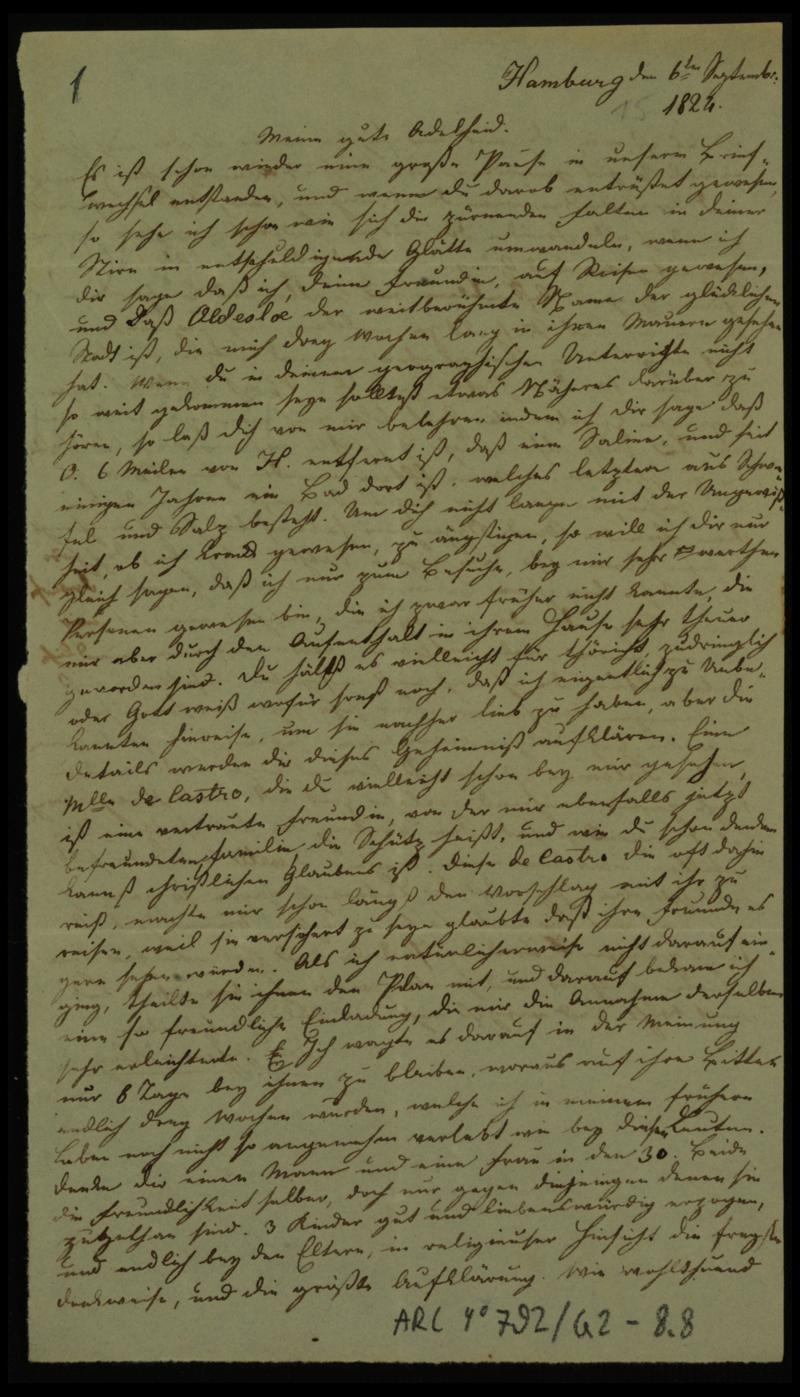 1
Hamburg den 6ten Septembr.
15 1824.
Meine gute Adelheid.
Es ist schon wieder eine große Pause in unserm Brief-
wechsel entstanden, und wenn du darob entrüstet gewesen,
so sehe ich schon wie sich die zürnenden Falten in deiner
Stirn in entschuldigende Glätte umwandeln, wenn ich
dir sage daß ich, deine Freundin, auf Reisen gewesen,
und daß Oldesloe der weitberühmte Name der glücklichen
Stadt ist, die mich drey Wochen lang in ihren Mauern gesehen
hat. Wenn du in deinem geographischen Unterrichte nicht
so weit gekommen seyn solltest etwas Näheres darüber zu
hören, so laß dich von mir belehren indem ich dir sage daß
O. 6 Meilen von H. entfernt ist, daß eine Saline, und seit
einigen Jahren ein Bad dort ist, welches letztere aus Schwe-
fel und Salz besteht. Um dich nicht lange mit der Ungewiß-
heit, ob ich krank gewesen, zu ängstigen, so will ich dir nur
gleich sagen, daß ich nur zum Besuche, bey mir sehr werthen
Personen gewesen bin, die ich zwar früher nicht kannte, die
mir aber durch den Aufenthalt in ihrem Hause sehr theuer
geworden sind. Du hältst es vielleicht für thöricht, zudringlich
oder Gott weiß wofür sonst noch, daß ich eigentlich zu Unbe-
kannten hinreise, um sie nachher lieb zu haben, aber die
Details werden dir dieses Geheimniß aufklären. Eine
Mlle de Castro, die du vielleicht schon bey mir gesehen,
ist eine vertraute Freundin, von der mir ebenfalls jetzt
befreundeten Familie die Schütz heißt, und wie du schon denken
kannst christlichen Glaubens ist. Diese de Castro die oft dahin
reist, machte mir schon längst den Vorschlag mit ihr zu
reisen, weil sie versichert zu seyn glaubte daß ihre Freunde es
gern sehen würden. Als ich natürlicherweise nicht darauf ein-
ging, theilte sie ihnen den Plan mit, und darauf bekam ich
eine so freundliche Einladung, die mir die Annahme derselben
sehr erleichterte. Ich wagte es darauf in der Meinung
nur 8 Tage bey ihnen zu bleiben, woraus auf ihre Bitten
endlich drey Wochen wurden, welche ich in meinem frühern
Leben noch nicht so angenehm verlebt wie bey diesen Leuten.
Denke dir einen Mann und eine Frau in den 30. Beide
die Freundlichkeit selber, doch nur gegen diejenigen denen sie
zugethan sind. 3 Kinder gut und liebenswürdig erzogen,
und endlich bey den Eltern, in religieuser Hinsicht die freyste
Denkweise, und die größte Aufklärung. Wie wohlthuend
ARC 4° 792/G2 - 8.8